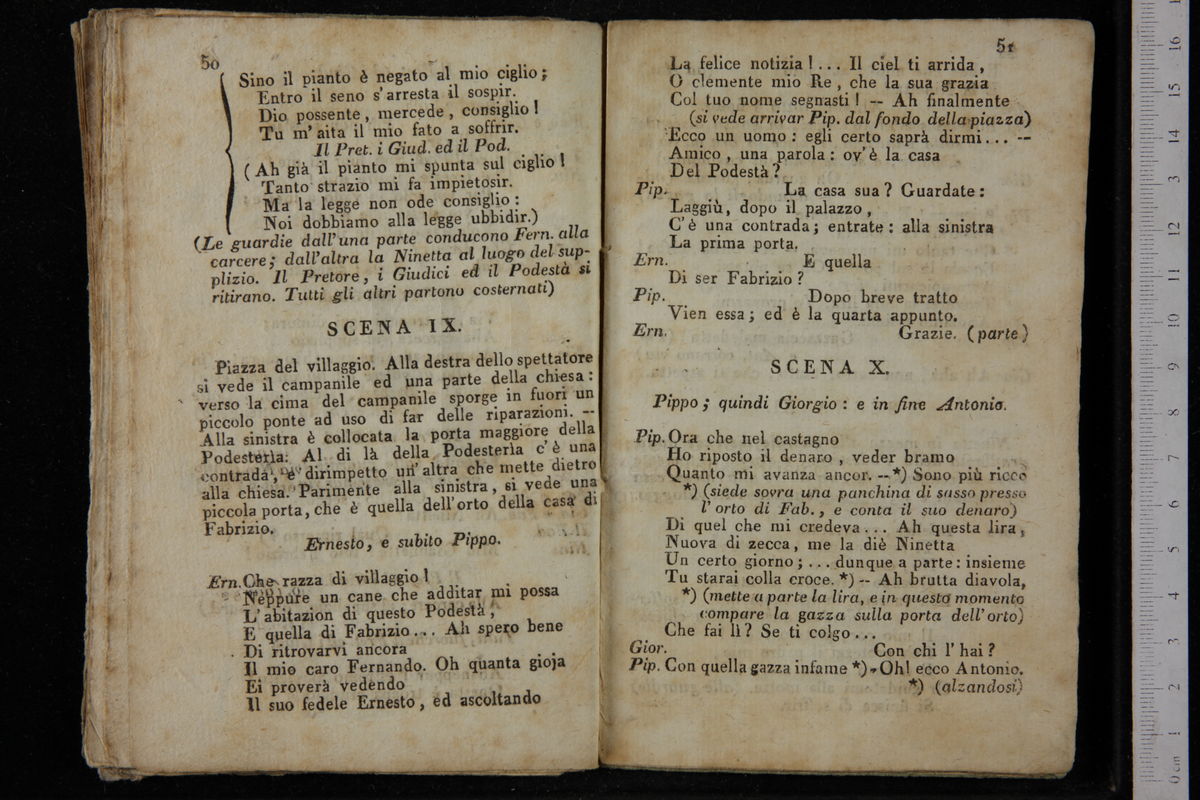 50
Sino il pianto è negato al mio ciglio;
Entro il seno s'arresta il sospir.
Dio possente, mercede, consiglio!
Tu m'aita il mio fato a soffrir.
Il Pret. i Giud. ed il Pod.
(Ah già il pianto mi spunta sul ciglio!
Tanto strazio mi fa impietosir.
Ma la legge non ode consiglio:
Noi dobbiamo alla legge ubbidir.)
(Le guardie dall'una parte conducono Fern. alla
carcere; dall'altra la Ninetta al luogo del sup-
plizio. Il Pretore, i Giudici ed il Podestà si
ritirano. Tutti gli altri partono costernati)
SCENA IX.
Piazza del villaggio. Alla destra dello spettatore
si vede il campanile ed una parte della chiesa:
verso la cima del campanile sporge in fuori un
piccolo ponte ad uso di far delle riparazioni. --
Alla sinistra è collocata la porta maggiore della
Podesterìa. Al di là della Podesterìa c'è una
contrada, e dirimpetto un'altra che mette dietro
alla chiesa. Parimente alla sinistra, si vede una
piccola porta, che è quella dell'orto della casa di
Fabrizio.
Ernesto, e subito Pippo.
Ern. Che razza di villaggio!
Neppure un cane che additar mi possa
L'abitazion di questo Podestà,
E quella di Fabrizio... Ah spero bene
Di ritrovarvi ancora
Il mio caro Fernando. Oh quanta gioja
Ei proverà vedendo
Il suo fedele Ernesto, ed ascoltando
51
La felice notizia!... Il ciel ti arrida,
O clemente mio Re, che la sua grazia
Col tuo nome segnasti! -- Ah finalmente
(si vede arrivar Pip. dal fondo della piazza)
Ecco un uomo: egli certo saprà dirmi... --
Amico, una parola: ov'è la casa
Del Podestà?
Pip. La casa sua? Guardate:
Laggiù, dopo il palazzo,
C'è una contrada; entrate: alla sinistra
La prima porta.
Ern. E quella
Di ser Fabrizio?
Pip. Dopo breve tratto
Vien essa; ed è la quarta appunto.
Ern. Grazie. (parte)
SCENA X.
Pippo; quindi Giorgio: e in fine Antonio.
Pip. Ora che nel castagno
Ho riposto il denaro, veder bramo
Quanto mi avanza ancor. -- *) Sono più ricco
*) (siede sovra una panchina di sasso presso
l'orto di Fab., e conta il suo denaro)
Di quel che mi credeva... Ah questa lira,
Nuova di zecca, me la diè Ninetta
Un certo giorno;... dunque a parte: insieme
Tu starai colla croce. *) -- Ah brutta diavola,
*) (mette a parte la lira, e in questo momento
compare la gazza sulla porta dell'orto)
Che fai lì? Se ti colgo...
Gior. Con chi l'hai?
Pip. Con quella gazza infame *) - Oh! ecco Antonio.
*) (alzandosi)
0 cm 1 2 3 4 5 6 7 8 9 10 11 12 13 14 15 16